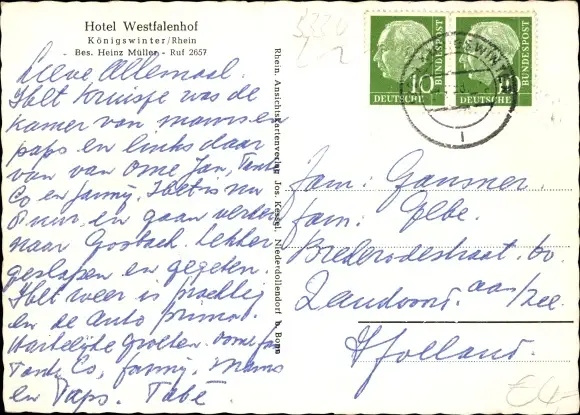 Hotel Westfalenhof
Königswinter/Rhein
Bes. Heinz Müller - Ruf 2657
Lieve Allemaal.
Het kruisje was de
kamer van mams en
paps en links daar
van van ome Jan, Tante
Co en Janny. Het is nu
8 uur en gaan verder
naar Gosbach. Lekker
geslapen en gegeten.
Het weer is prachtig
en de auto prima.
Hartelijke groeten. ome Jan
Tante Co, Janny, Mams
en Paps. Tabé.
Rhein. Ansichtskartenverlag Jos. Kessel, Niederdollendorf b. Bonn
10 DEUTSCHE BUNDESPOST
10 DEUTSCHE BUNDESPOST
KÖNIGSWINTER
Fam: Gansner.
fam: Elbe.
Brederodestraat. 60.
Zandvoort. aan/zee.
Holland.
€4,-